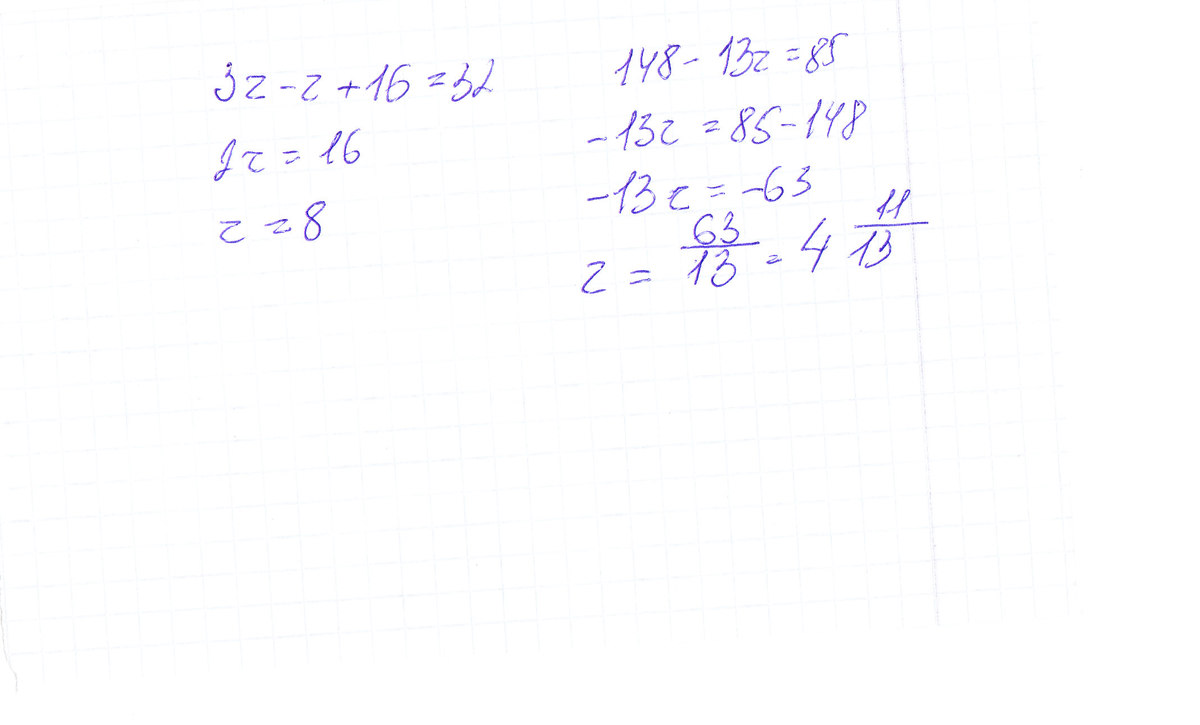 3z - z + 16 = 32
2z = 16
z = 8
148 - 13z = 85
-13z = 85 - 148
-13z = -63
z = 63/13 = 4 11/13